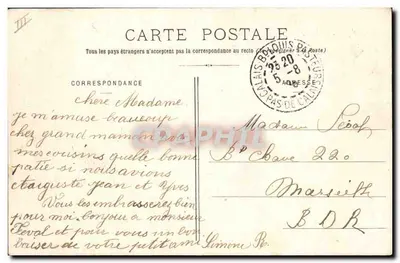 CARTE POSTALE
Tous les pays étrangers n'acceptent pas la correspondance au recto
CORRESPONDANCE
ADRESSE
CALAIS BD LOUIS PASTEUR
20
5 -8
PAS DE CALAIS
Chère Madame
je m'amuse beaucoup
chez grand maman
mes cousins quelle bonne
patie si nous avions
Auguste Jean et Yves
Vous les embrasserez bien
pour moi Bonjour a monsieur
Loval et pour vous un bon
baiser de votre petit ami
Simone R.
Madame Loval
Bd Chave 220
Marseille
B D R